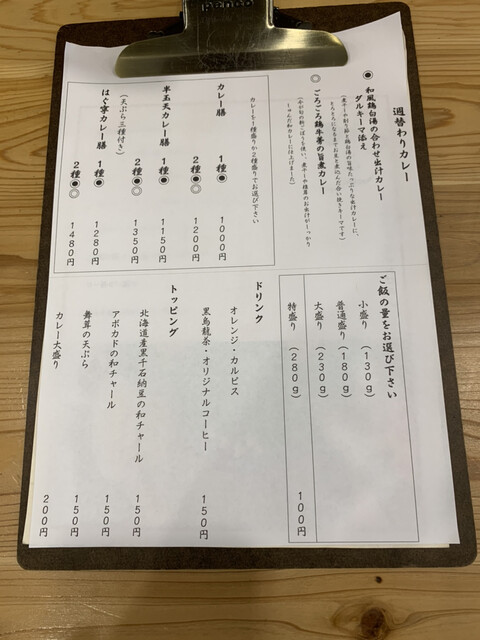 KENKO
週替わりカレー
◉ 和風鶏白湯の合わせ出汁カレー
ダルキーマ添え
◎ ごろごろ鶏牛蒡の旨煮カレー
カレーを一種盛りか二種盛りでお選び下さい
カレー膳
1種◉ 1000円
2種◉◎ 1200円
半玉天カレー膳
1種◉ 1150円
2種◉◎ 1350円
はぐ寧カレー膳
(天ぷら三種付き)
1種◉ 1280円
2種◉◎ 1480円
ご飯の量をお選び下さい
小盛り (130g)
普通盛り (180g)
大盛り (230g)
特盛り (280g) 100円
ドリンク
オレンジ・カルピス
黒烏龍茶・オリジナルコーヒー 150円
トッピング
北海道産黒千石納豆の和チャール 150円
アボカドの和チャール 150円
舞茸の天ぷら 150円
カレー大盛り 200円